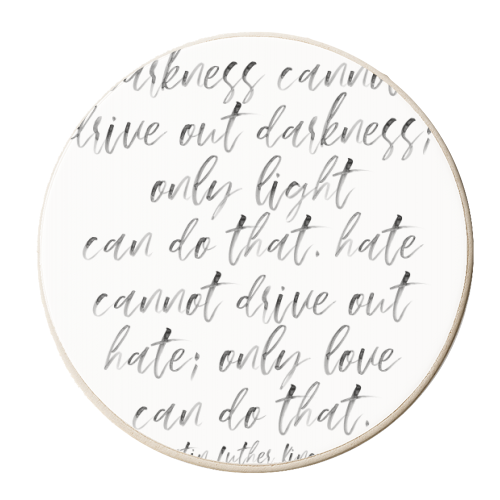 darkness cannot
drive out darkness;
only light
can do that. hate
cannot drive out
hate; only love
can do that.
luther king